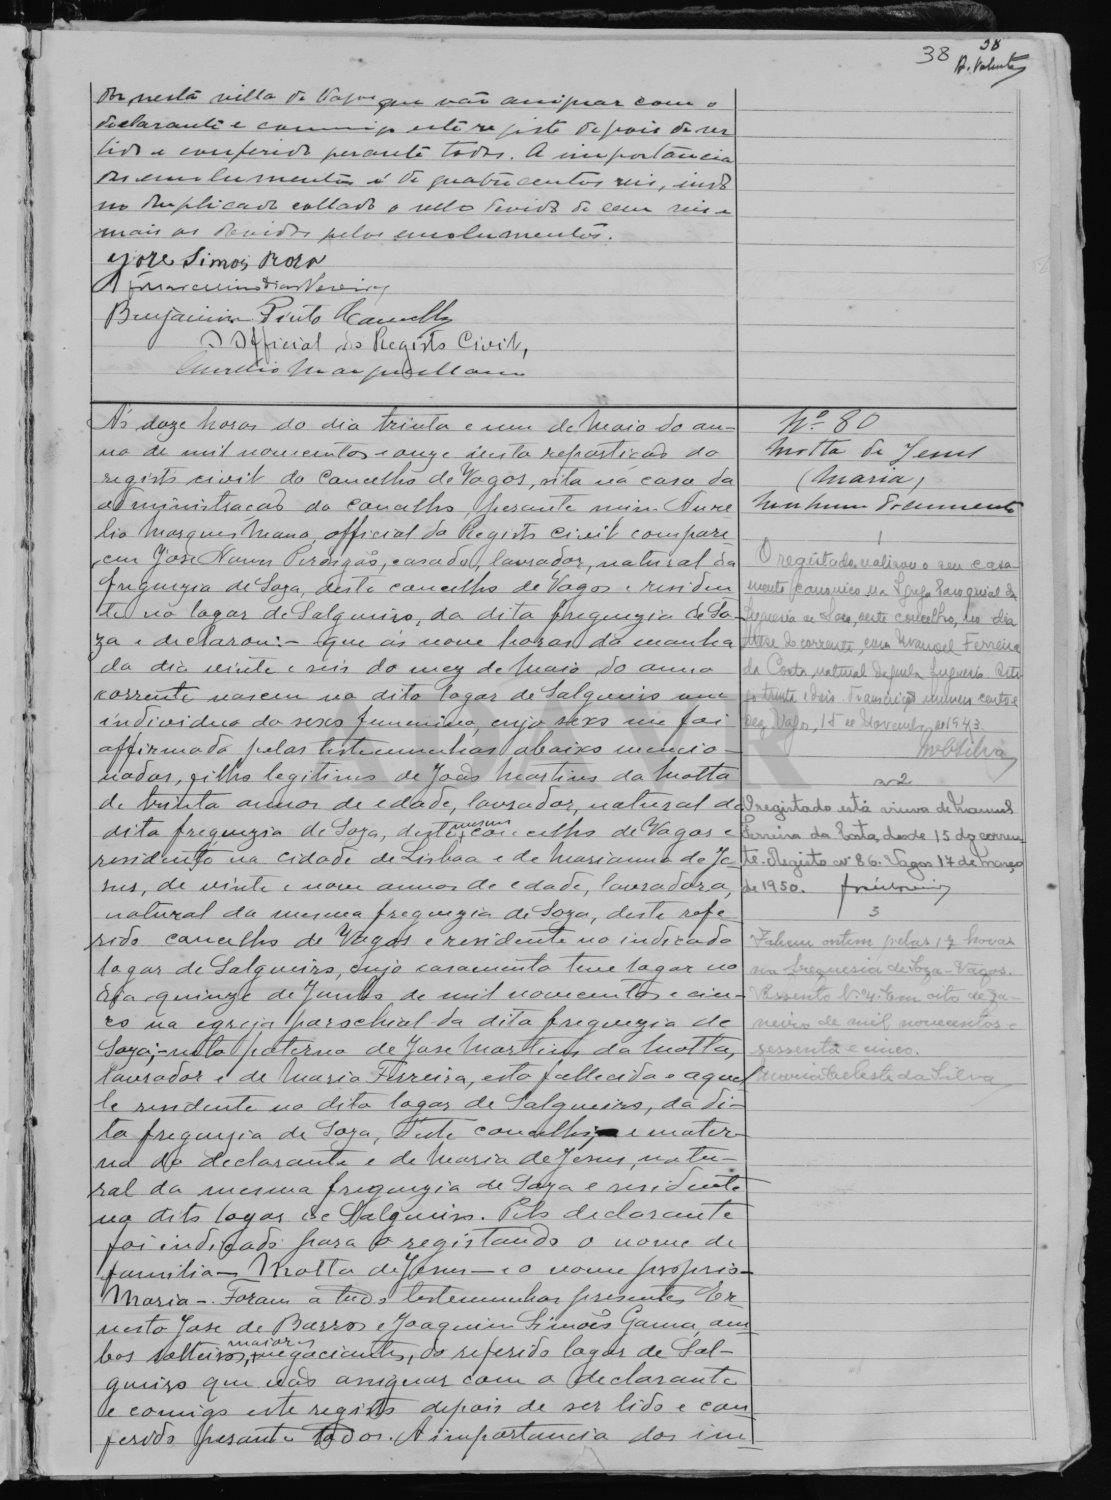 38
38
nesta villa de Vagos que vão assignar com o
declarante e commigo este registo depois de ser
lido e conferido perante todos. A importancia
dos emolumentos é de quatrocentos reis, indo
no duplicado collado o sello devido de cem reis e
mais os devidos pelos emolumentos.
José Simões
Benjamim Pinto
O Official do Registo Civil,
Aurelio Marques Mano
Nº 80
Motta de Jesus
(Maria)
Nenhum documento
Ás doze horas do dia trinta e um de Maio do an-
no de mil novecentos e onze nesta repartição do
registo civil do concelho de Vagos, sita na casa da
administração do concelho, perante mim Aure-
lio Marques Mano, official do Registo civil compare-
ceu José Nunes, casado, lavrador, natural da
freguezia de Soza, deste concelho de Vagos e residen-
te no logar de Salgueiro, da dita freguezia de So-
za e declarou:- que ás nove horas da manhã
do dia vinte e seis do mez de Maio do anno
corrente nasceu no dito logar de Salgueiro um
individuo do sexo feminino, cujo sexo me foi
affirmado pelas testemunhas abaixo mencio-
nadas, filho legitimo de João Martins da Motta
de trinta annos de edade, lavrador, natural da
dita freguezia de Soza, deste mesmo concelho de Vagos e
residente na cidade de Lisboa e de Marianna de Je-
sus, de vinte e nove annos de edade, lavradora,
natural da mesma freguezia de Soza, deste refe-
rido concelho de Vagos e residente no indicado
logar de Salgueiro, cujo casamento teve logar no
dia quinze de Junho, de mil novecentos e cin-
co na egreja parochial da dita freguezia de
Soza; neto paterno de José Martins da Motta,
lavrador e de Maria Ferreira, esta fallecida e aquel-
le residente no dito logar de Salgueiro, da di-
ta freguezia de Soza, deste concelho e mater-
no do declarante e de Maria de Jesus, natu-
ral da mesma freguezia de Soza e residente
no dito logar de Salgueiro. Pelo declarante
foi indicado para o registando o nome de
familia - Motta de Jesus - e o nome proprio -
Maria -. Foram a tudo testemunhas presentes Er-
nesto José de Barros e Joaquim Simões Gama, am-
bos solteiros, maiores, negociantes, do referido logar de Sal-
gueiro que vão assignar com o declarante
e comigo este registo depois de ser lido e con-
ferido perante todos. A importancia dos em-
1
O registado realizou o seu casa-
mento canonico na Igreja Paroquial da
freguesia de Soza, neste concelho, no dia
treze do corrente, com Manuel Ferreira
da Costa, natural daquela freguesia.
trinta e dois. Transcrição numero cento e
dez. Vagos, 18 de Novembro de 1943.
Silva
nº2
O registado está viuva de Manuel
Ferreira da Costa, desde 15 do corren-
te. Registo nº 86. Vagos 17 de Março
de 1950.
3
Faleceu ontem pelas 17 horas
na freguesia de Soza - Vagos.
Assento nº 4. Em oito de Ja-
neiro de mil novecentos e
sessenta e cinco.
Maria Celeste da Silva
ADAVR